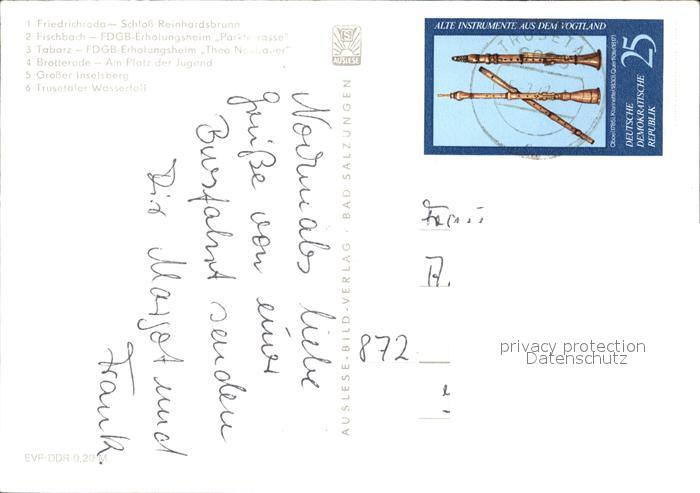 1 Friedrichroda— Schloß Reinhardsbrunn
2 Fischbach — FDGB-Erholungsheim „Parkterrasse"
3 Tabarz — FDGB-Erholungsheim „Theo Neubauer"
4 Brotterode — Am Platz der Jugend
5 Großer Inselsberg
6 Trusetaler Wasserfall
AUSLESE
AUSLESE-BILD-VERLAG · BAD SALZUNGEN
Nochmals liebe
Grüße von einer
Busfahrt senden
Dir Margot und
Frank.
EVP-DDR 0,20 M
ALTE INSTRUMENTE AUS DEM VOGTLAND
25
DEUTSCHE
DEMOKRATISCHE
REPUBLIK
TRUSETAL
872
privacy protection
Datenschutz